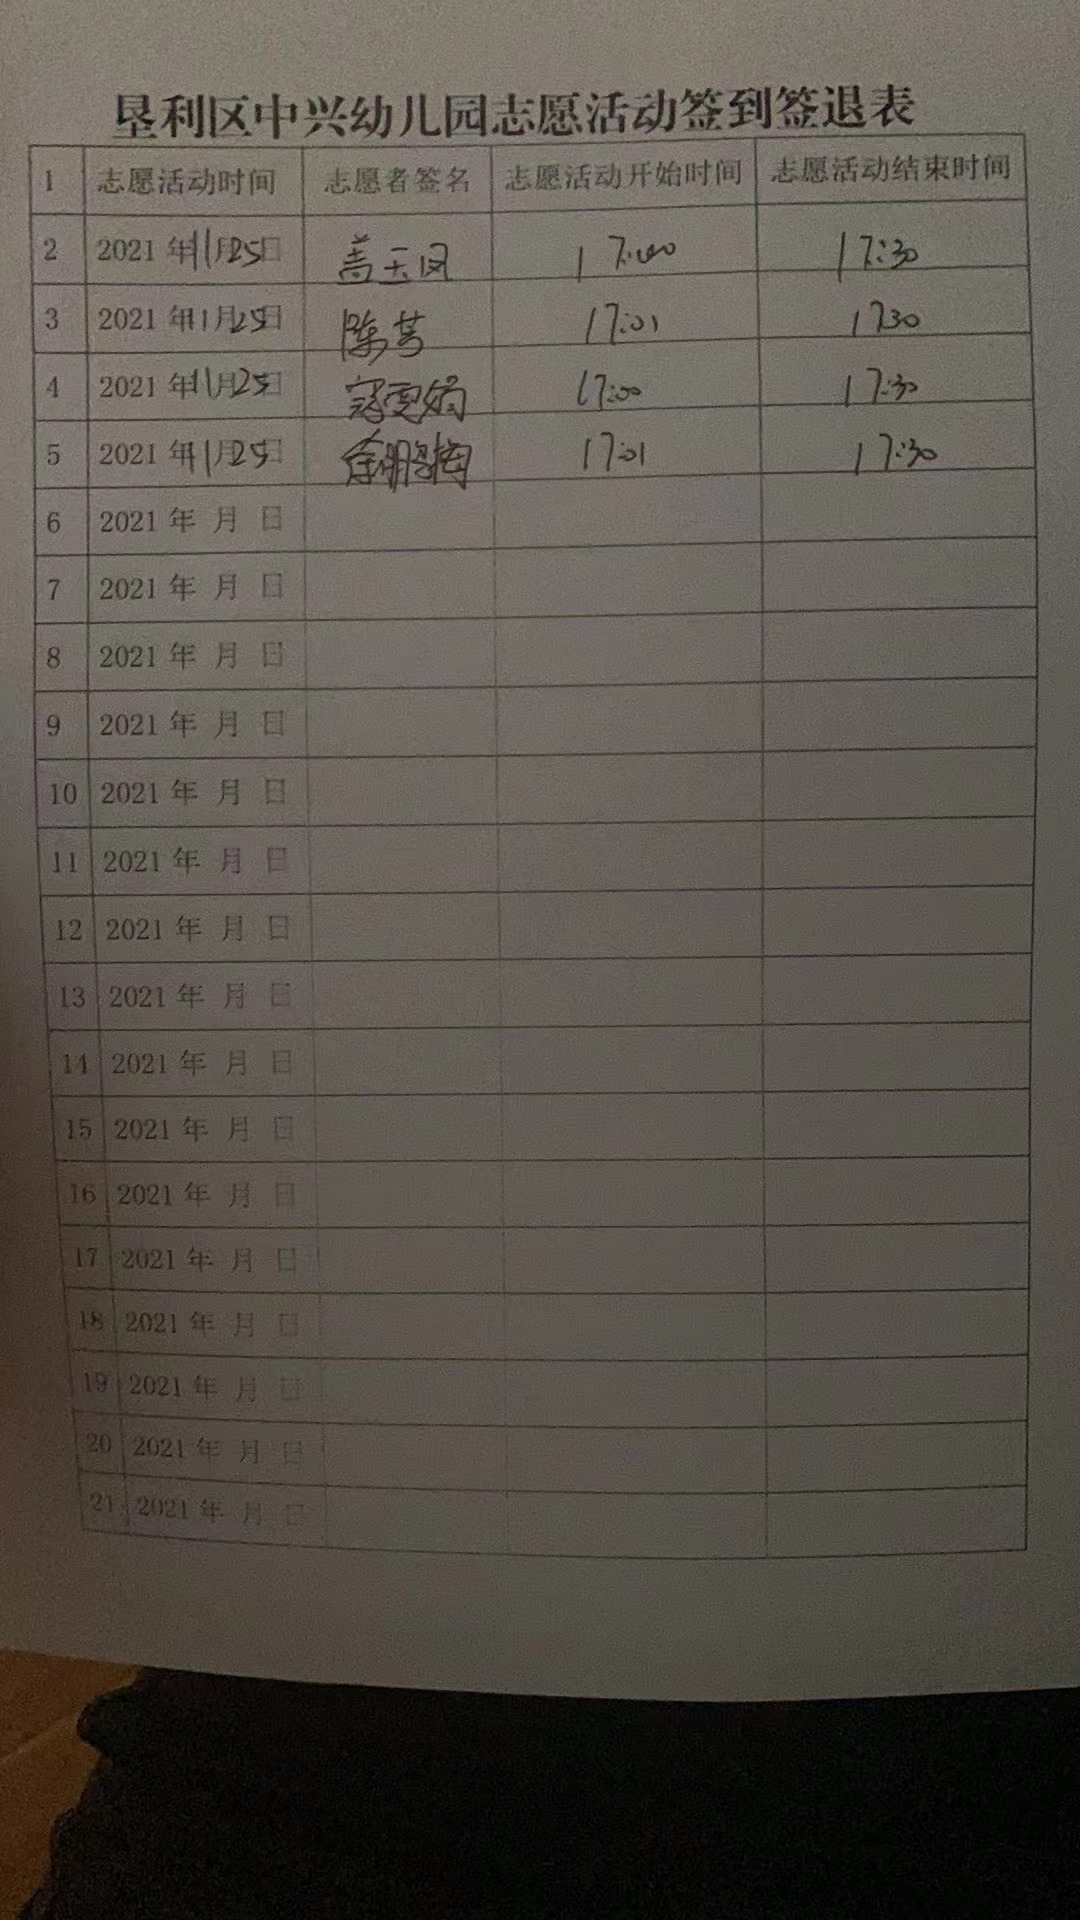 垦利区中兴幼儿园志愿活动签到签退表
1 志愿活动时间 志愿者签名 志愿活动开始时间 志愿活动结束时间
2 2021 年11月25日 盖玉凤 17:00 17:30
3 2021 年11月25日 陈芳 17:01 1730
4 2021 年11月25日 17:00 17:30
5 2021 年11月25日 17:01 17:30
6 2021 年 月 日
7 2021 年 月 日
8 2021 年 月 日
9 2021 年 月 日
10 2021 年 月 日
11 2021 年 月 日
12 2021 年 月 日
13 2021 年 月 日
14 2021 年 月 日
15 2021 年 月 日
16 2021 年 月 日
17 2021 年 月 日
18 2021 年 月 日
19 2021 年 月 日
20 2021 年 月 日
21 2021 年 月 日